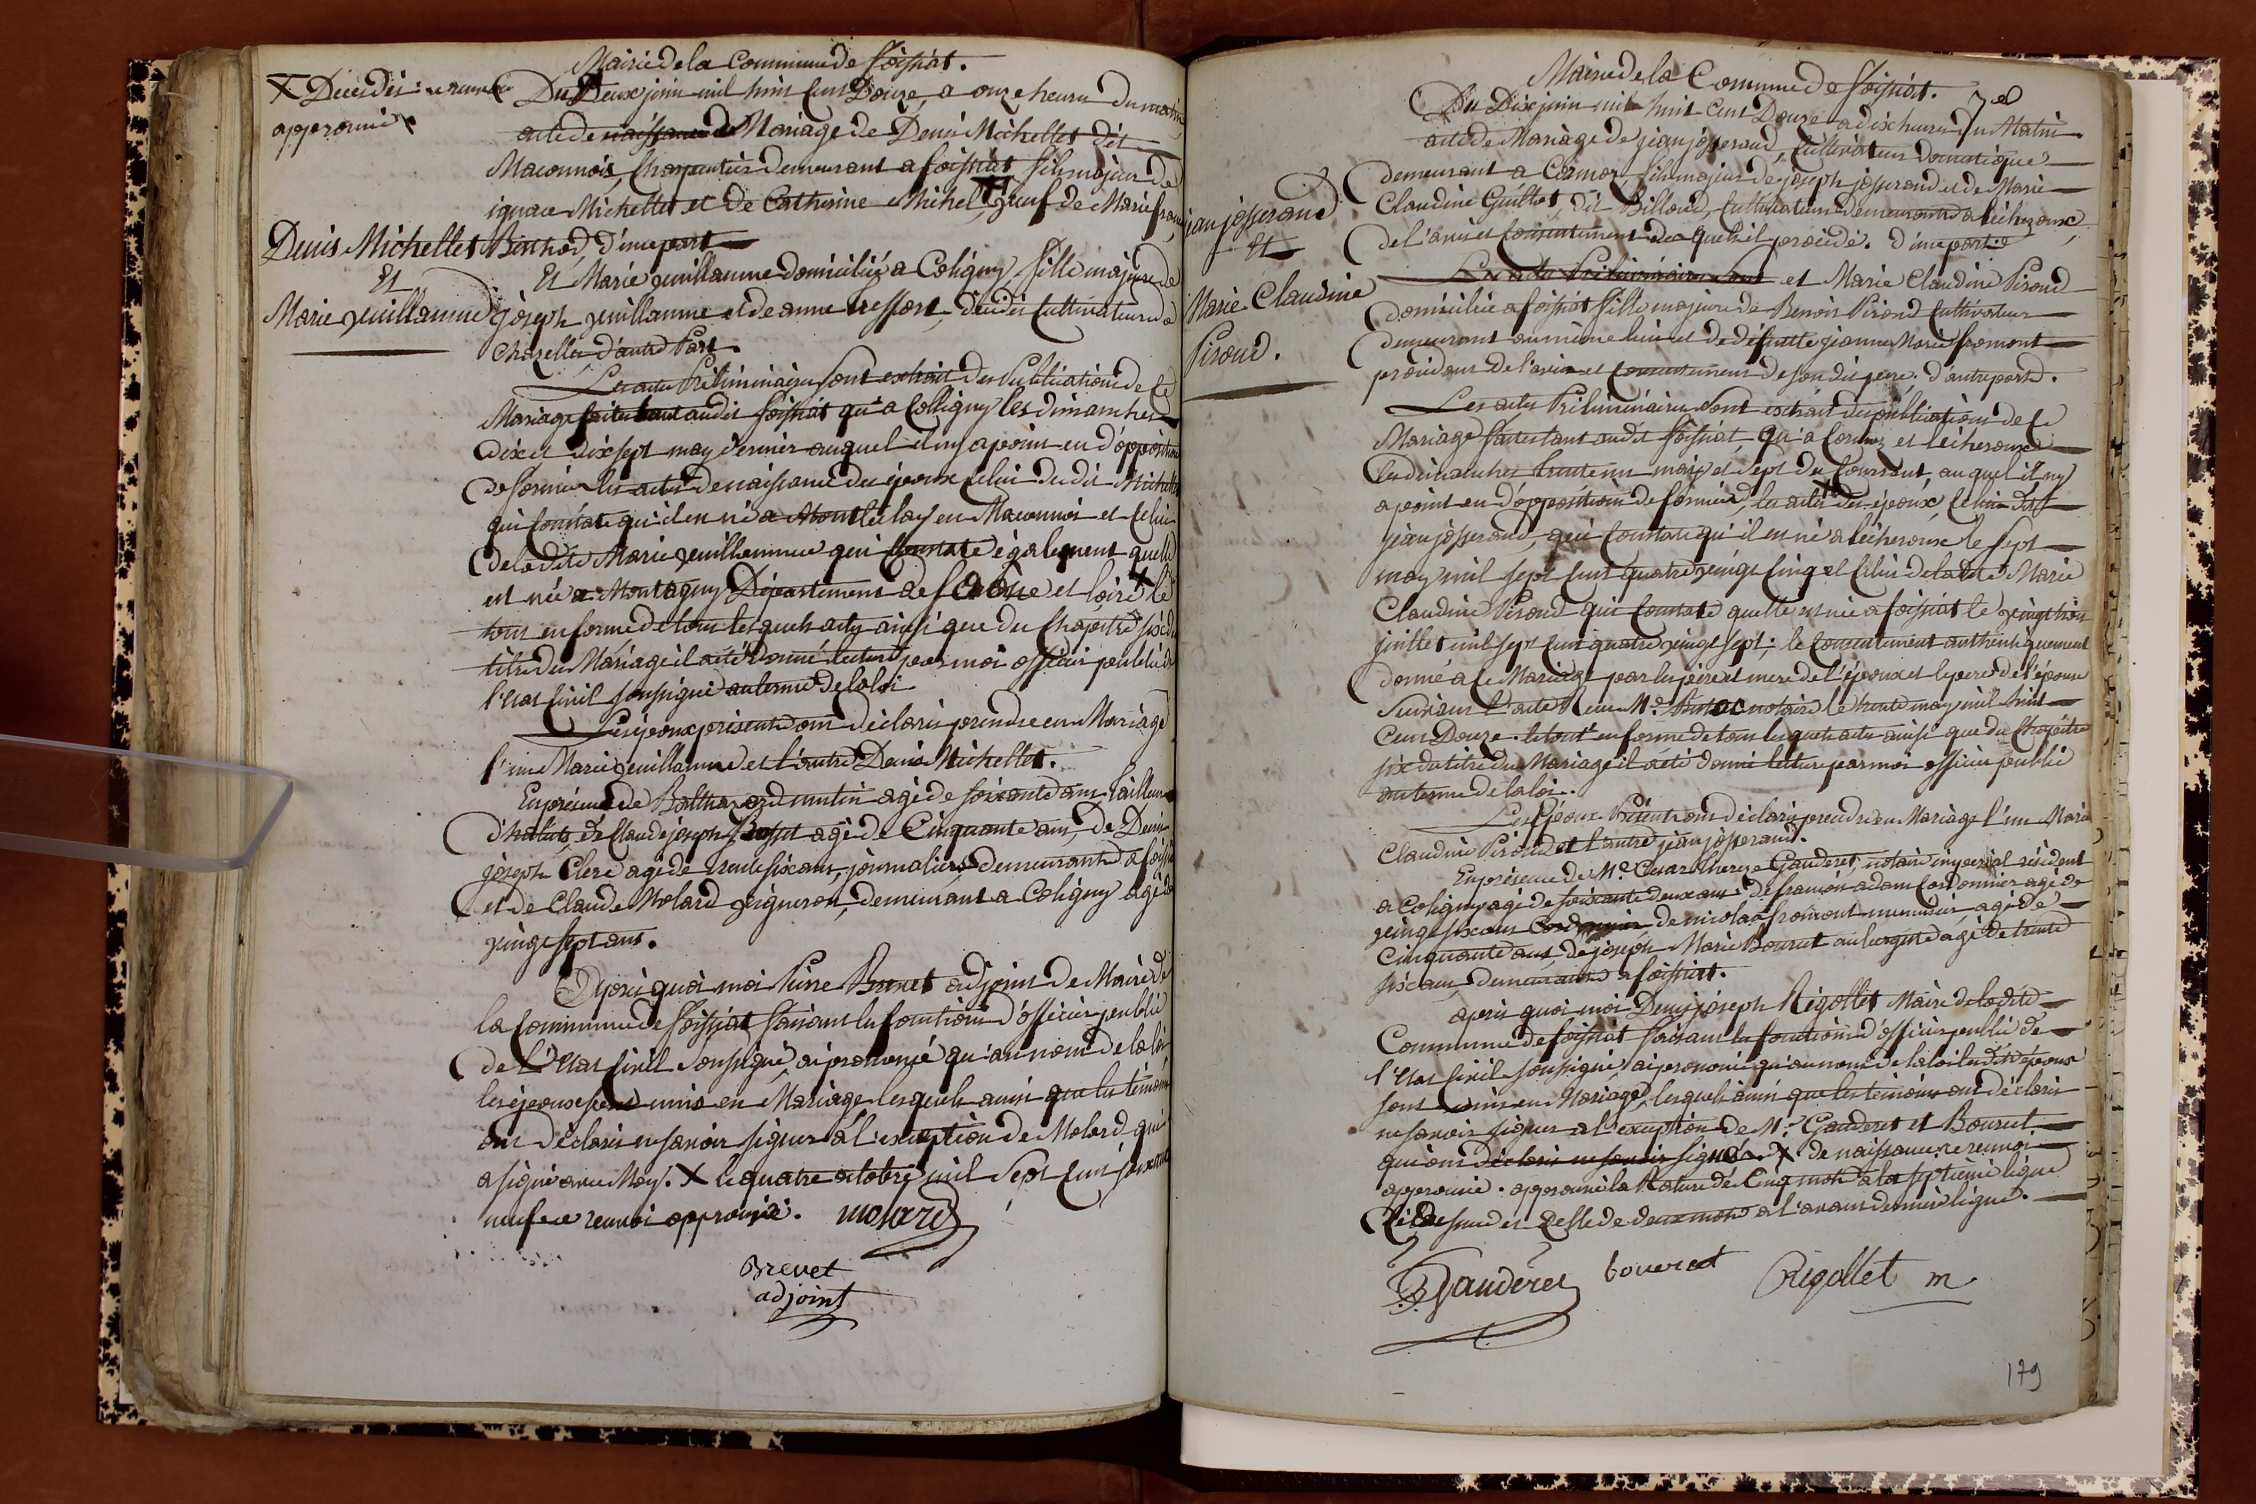 Mairie de la Commune de foissiat.
X Décédés : ce renvoi
approuvé
Du Deux juin mil huit Cent Douze, a onze heures du matin
acte de naissance de Mariage de Denis Michellet dit
Maconnois, Charpentier demeurant a foissiat fils majeur de
ignace Michellet et de Catherine Michel X, veuf de Marie
Denis Michellet
Et
Marie guillaume
d'une part
Et Marie guillaume domiciliée a Coligny fille majeure de
joseph guillaume et de anne tressort, décédés Cultivateurs a
d'autre Part.
Les actes Préliminaires sont extrait des Publications de ce
Mariage faites tant audit foissiat qu'a Colligny les dimanches
dix et dix sept may dernier auquel il ny a point eu d'opposition
de formée les actes de naissance des époux celui du dit Michellet
qui Constate qu'il en né a en Maconnois et Celui
de la dite Marie guillaumme qui Constate également quelle
est née a Montagny Département de Saône et loire X le
tout en forme de tous lesquels actes ainsi que du Chapitre six du
titre du Mariage il a été donné lecture par moi officier public de
l'Etat Civil soussigné au terme de la loi
Les époux présents ont déclaré prendre en Mariage
l'un Marie guillaume et l'autre Denis Michellet.
En présence de Balthazard mutin agé de soixante ans tailleur
d'habits, de Claude joseph agé de Cinquante ans, de Denis
joseph Clerc agé de trente six ans, journaliers demeurants a foissiat
et de Claude Molard vigneron, demeurant a Coligny agé de
vingt sept ans.
Après quoi moi Pierre Brevet adjoint de Maire de
la Commune de foissiat faisant les fonctions d'officier public
de l'Etat Civil soussigné ai prononcé qu'au nom de la loi
les époux sont unis en Mariage lesquels ainsi que les témoins
ont déclaré ne savoir signer a l'exception de Molard qui
a signé avec Moy. X le quatre octobre mil Sept Cent soixante
neuf ce renvoi approuvé. molard
Brevet
adjoint
Mairie de la Commune de foissiat.
Du Dix juin mil huit Cent Douze a dix heures du Matin
acte de Mariage de jean josserand, Cultivateur domestique
demeurant a Cormoz, fils majeur de joseph josserand et de Marie
Claudine Guillot, dit Billoud, Cultivateurs demeurants a lécheroux,
de l'avis et Consentement des quels il procède. d'une part
jean josserand
Et
Marie Claudine
Piroud.
Les actes Préliminaires sont et Marie Claudine Piroud
domiciliée a foissiat fille majeure de Benoit Piroud Cultivateur
demeurant au même lieu et de défunte jeanne Marie fromont
procédant de l'avis et Consentement de son dit père. d'autre part.
Les actes Préliminaires sont extrait des publications de ce
Mariage faites tant au dit foissiat, qu'a Cormoz et lécheroux
les dimanches trente un may et sept du Courrant, au quel il ny
a point eu d'opposition de formée, les actes X des époux, celui dud.
jean josserand, qui Constate qu'il en né a lécheroux le sept
may mil sept cent quatre vingt cinq et celui de la dite Marie
Claudine Piroud qui Constate quelle est née a foissiat le vingt huit
juillet mil sept cent quatre vingt sept; le Consentement authentiquement
donné a ce Mariage par les père et mere de l'époux et le pere de l'épouse
suivant l'acte Reçu Me notaire le trente may mil huit
Cent Douze. le tout en forme de tous lesquels actes ainsi que du Chapitre
six du titre du Mariage il a été donné lecture par moi officier public
au terme de la loi.
Les Epoux Présents ont déclaré prendre en Mariage l'un Marie
Claudine Piroud et l'autre jean josserand.
En présence de Me Gauderet, notaire impérial résident
a Coligny agé de soixante deux ans, de françois adam Cordonnier agé de
vingt six ans Cordonnier de nicolas fromont menuisier agé de
Cinquante ans, de joseph Marie Bouvret aubergiste agé de trente
six ans, demeurants a foissiat.
après quoi moi Denis joseph Rigollet Maire de la dite
Commune de foissiat faisant les fonctions d'officier public de
l'Etat Civil soussigné ai prononcé qu'au nom de la loi les dits époux
sont unis en Mariage, lesquels ainsi que les témoins ont déclaré
ne savoir signer a l'exception de Me. Gauderet et Bouvret
qui ont déclaré ne savoir signé. X de naissance ce renvoi
approuvé. approuvé la Rature de Cinq mots a la septieme ligne
Ci dessus et celle de deux mots a l'avant derniere ligne.
Gauderet bouvret Rigollet m
179